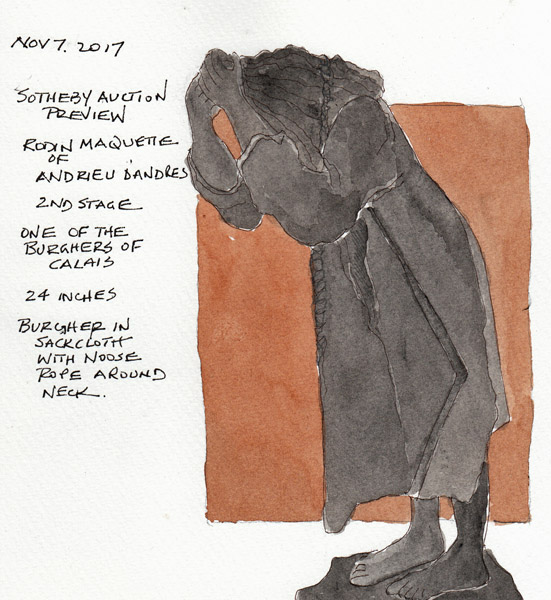 NOV 7. 2017
SOTHEBY AUCTION
PREVIEW
RODIN MAQUETTE
OF
ANDRIEU D'ANDRES
2ND STAGE
ONE OF THE
BURGHERS OF
CALAIS
24 INCHES
BURGHER IN
SACKCLOTH
WITH NOOSE
ROPE AROUND
NECK.